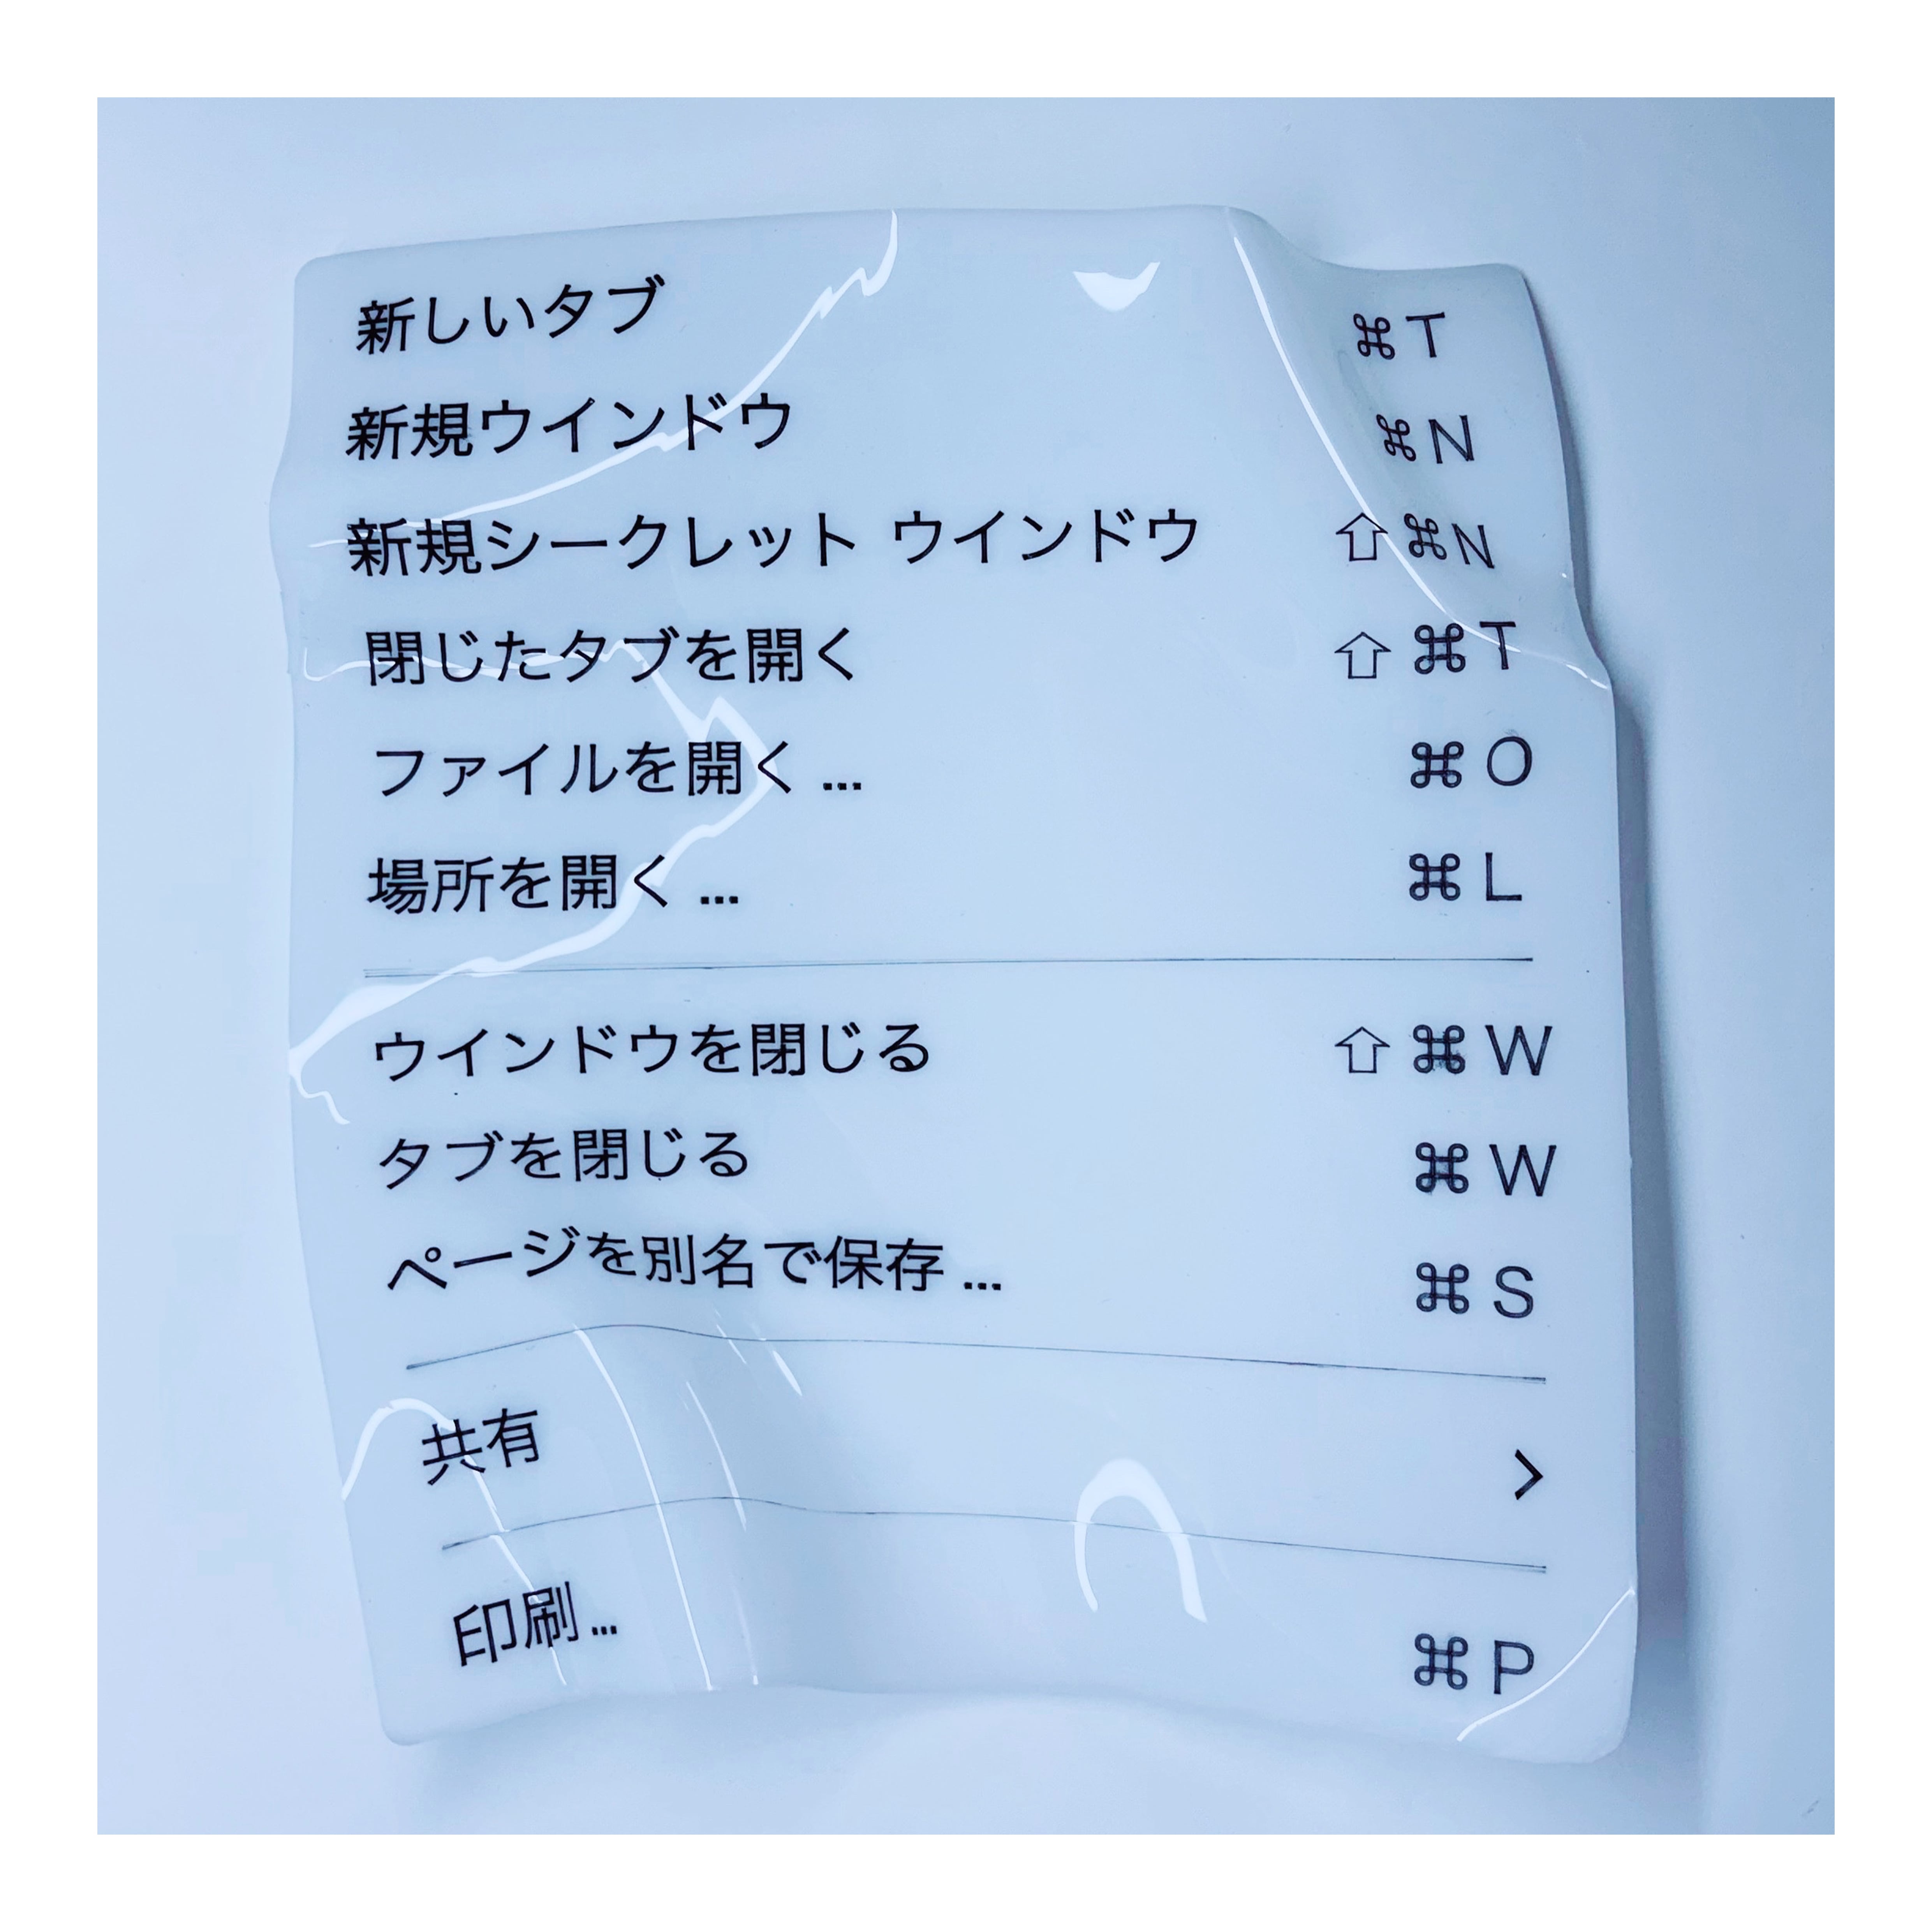 新しいタブ ⌘T
新規ウインドウ ⌘N
新規シークレット ウインドウ ⇧⌘N
閉じたタブを開く ⇧⌘T
ファイルを開く... ⌘O
場所を開く... ⌘L
ウインドウを閉じる ⇧⌘W
タブを閉じる ⌘W
ページを別名で保存... ⌘S
共有 >
印刷... ⌘P